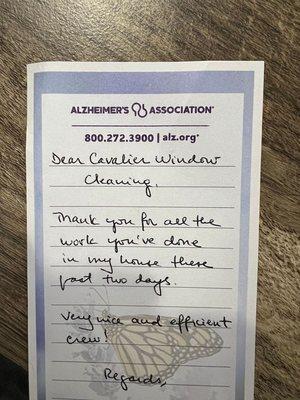 ALZHEIMER'S ASSOCIATION®
800.272.3900 | alz.org®
Dear Cavalier Window
Cleaning,
Thank you for all the
work you've done
in my house these
past two days.
Very nice and efficient
crew!
Regards,